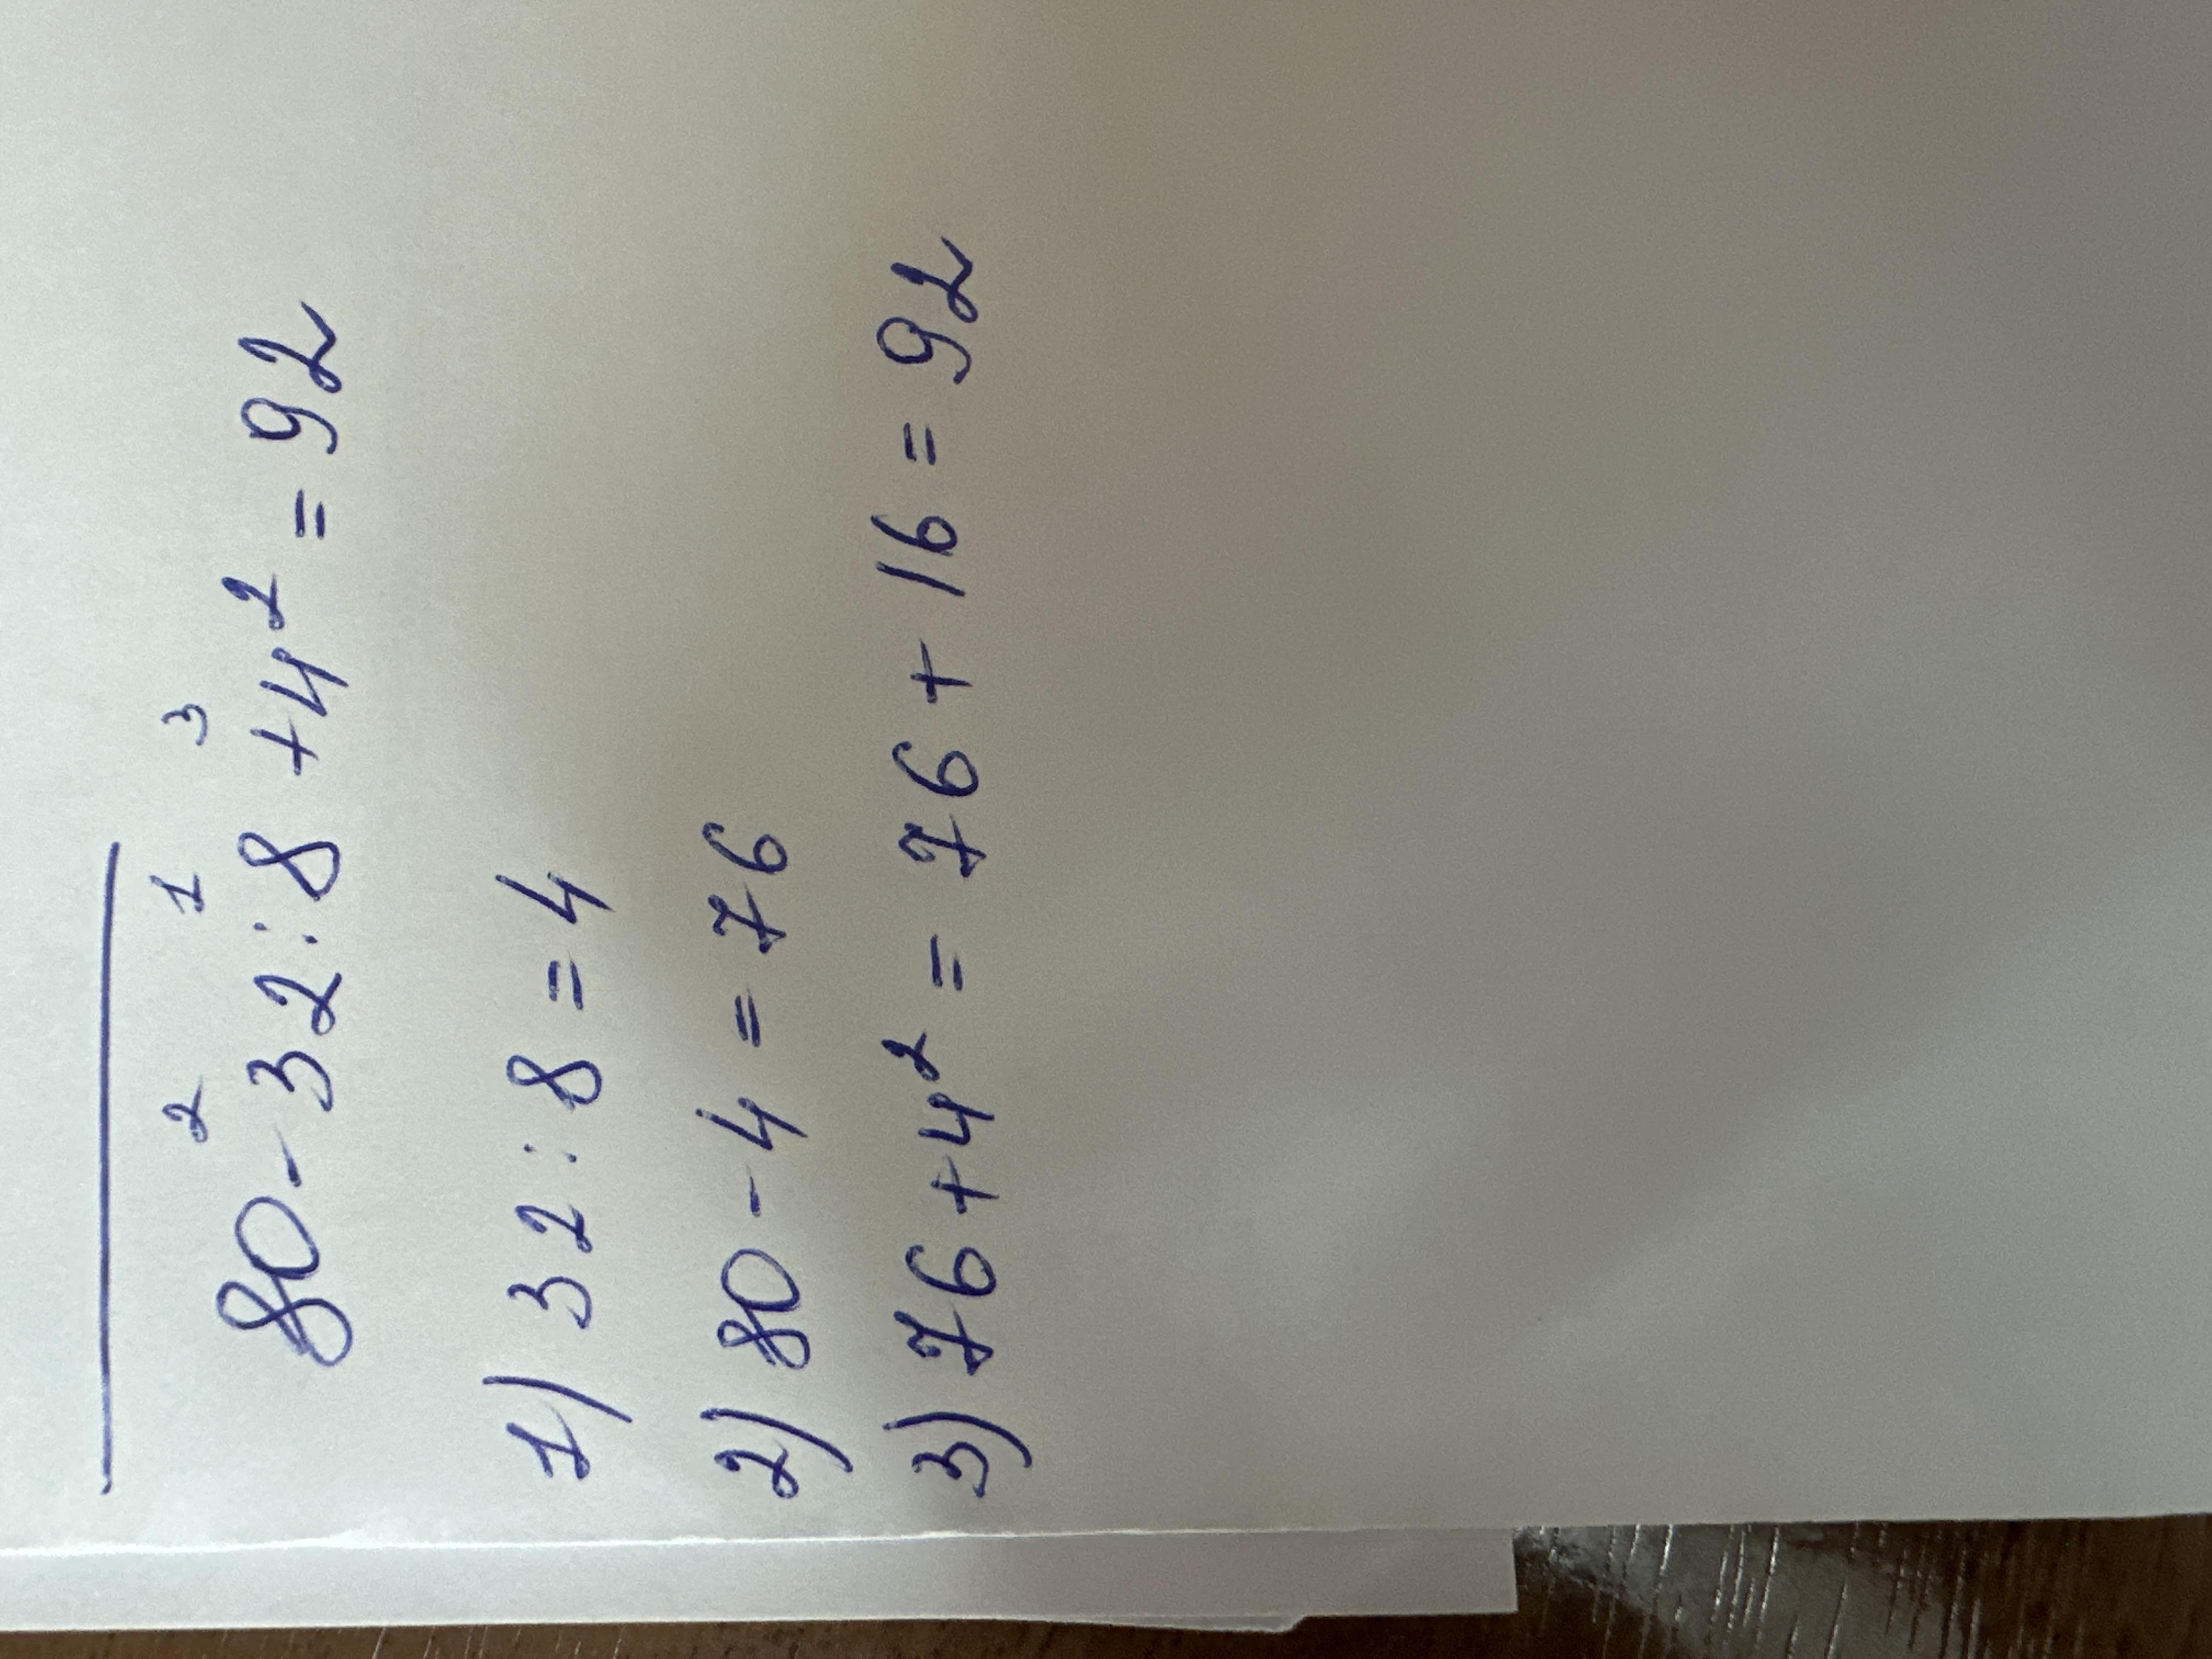 2 1 3
80-32:8+4²=92
1) 32:8=4
2) 80-4=76
3) 76+4²=76+16=92